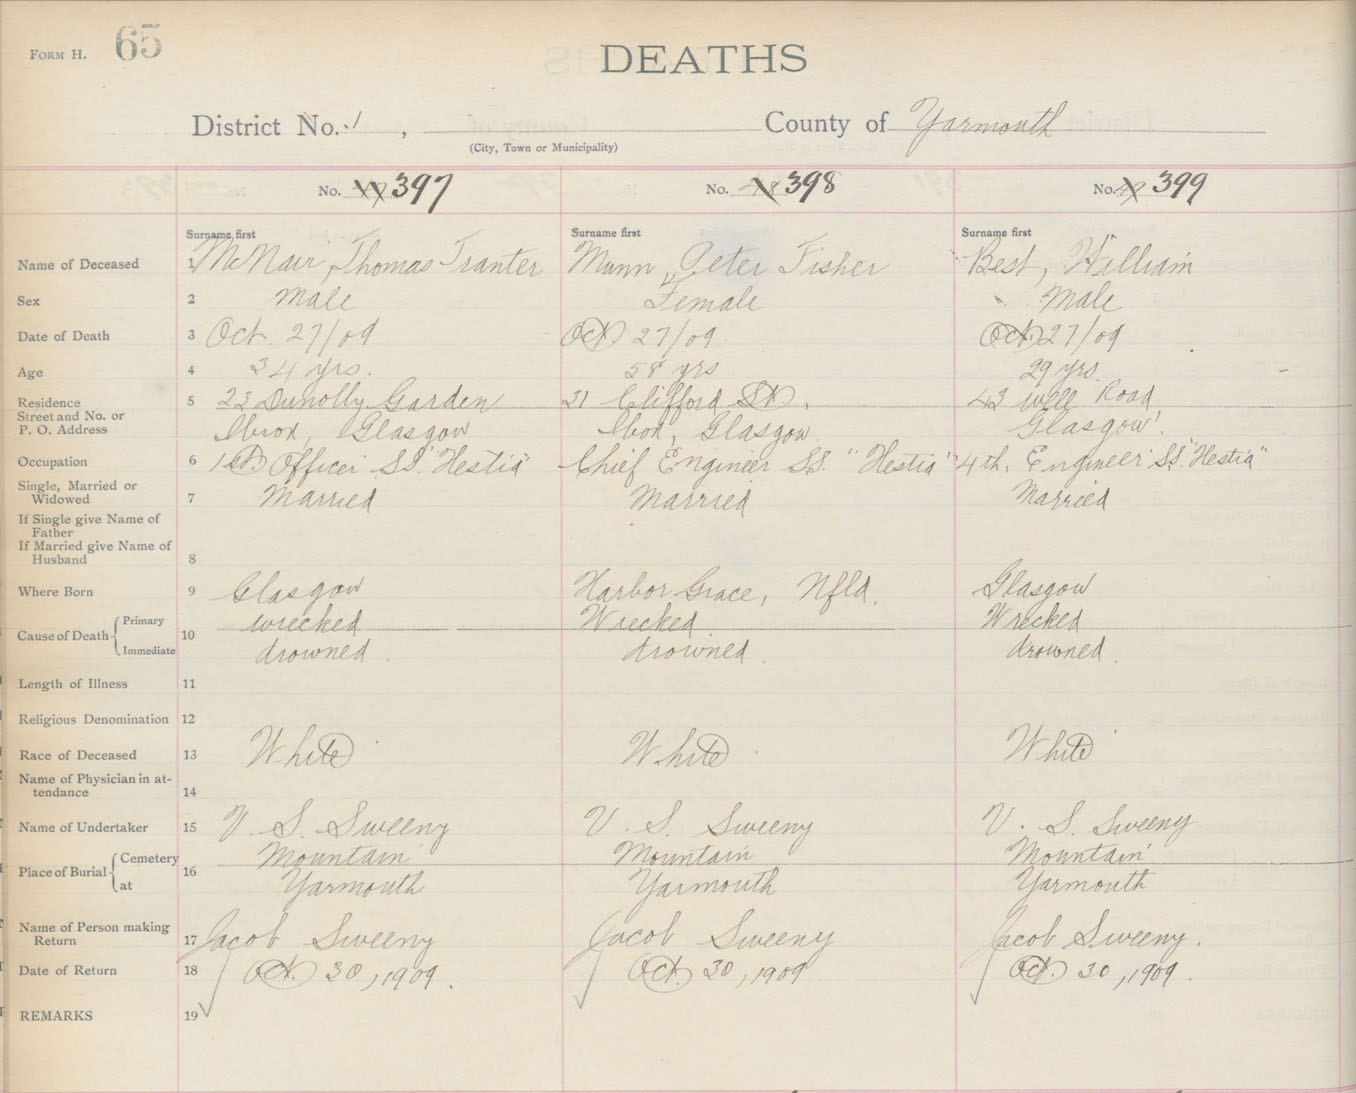 FORM H. 65
DEATHS
District No. 1 , County of Yarmouth
(City, Town or Municipality)
No. 47 397 No. 48 398 No. 49 399
Surname first Surname first Surname first
Name of Deceased 1 McNair, Thomas Tranter Munn, Peter Fisher Best, William
Sex 2 Male Female Male
Date of Death 3 Oct. 27/09 Oct 27/09 Oct. 27/09
Age 4 34 yrs. 58 yrs 29 yrs.
Residence 5 23 Dunolly Garden 31 Clifford St., 43 Well Road
Street and No. or
P. O. Address Ibrox, Glasgow Ibox, Glasgow Glasgow
Occupation 6 1st. Officer SS. "Hestia" Chief Engineer SS. "Hestia" 4th. Engineer SS. "Hestia"
Single, Married or
Widowed 7 Married Married Married
If Single give Name of
Father
If Married give Name of
Husband 8
Where Born 9 Glasgow Harbor Grace, Nfld. Glasgow
Cause of Death Primary 10 wrecked Wrecked Wrecked
Immediate drowned. drowned. drowned.
Length of Illness 11
Religious Denomination 12
Race of Deceased 13 White White White
Name of Physician in at-
tendance 14
Name of Undertaker 15 V. S. Sweeny V. S. Sweeny V. S. Sweeny
Place of Burial Cemetery 16 Mountain Mountain Mountain
at Yarmouth Yarmouth Yarmouth
Name of Person making
Return 17 Jacob Sweeny Jacob Sweeny Jacob Sweeny.
Date of Return 18 Oct. 30, 1909. Oct. 30, 1909. Oct. 30, 1909.
REMARKS 19